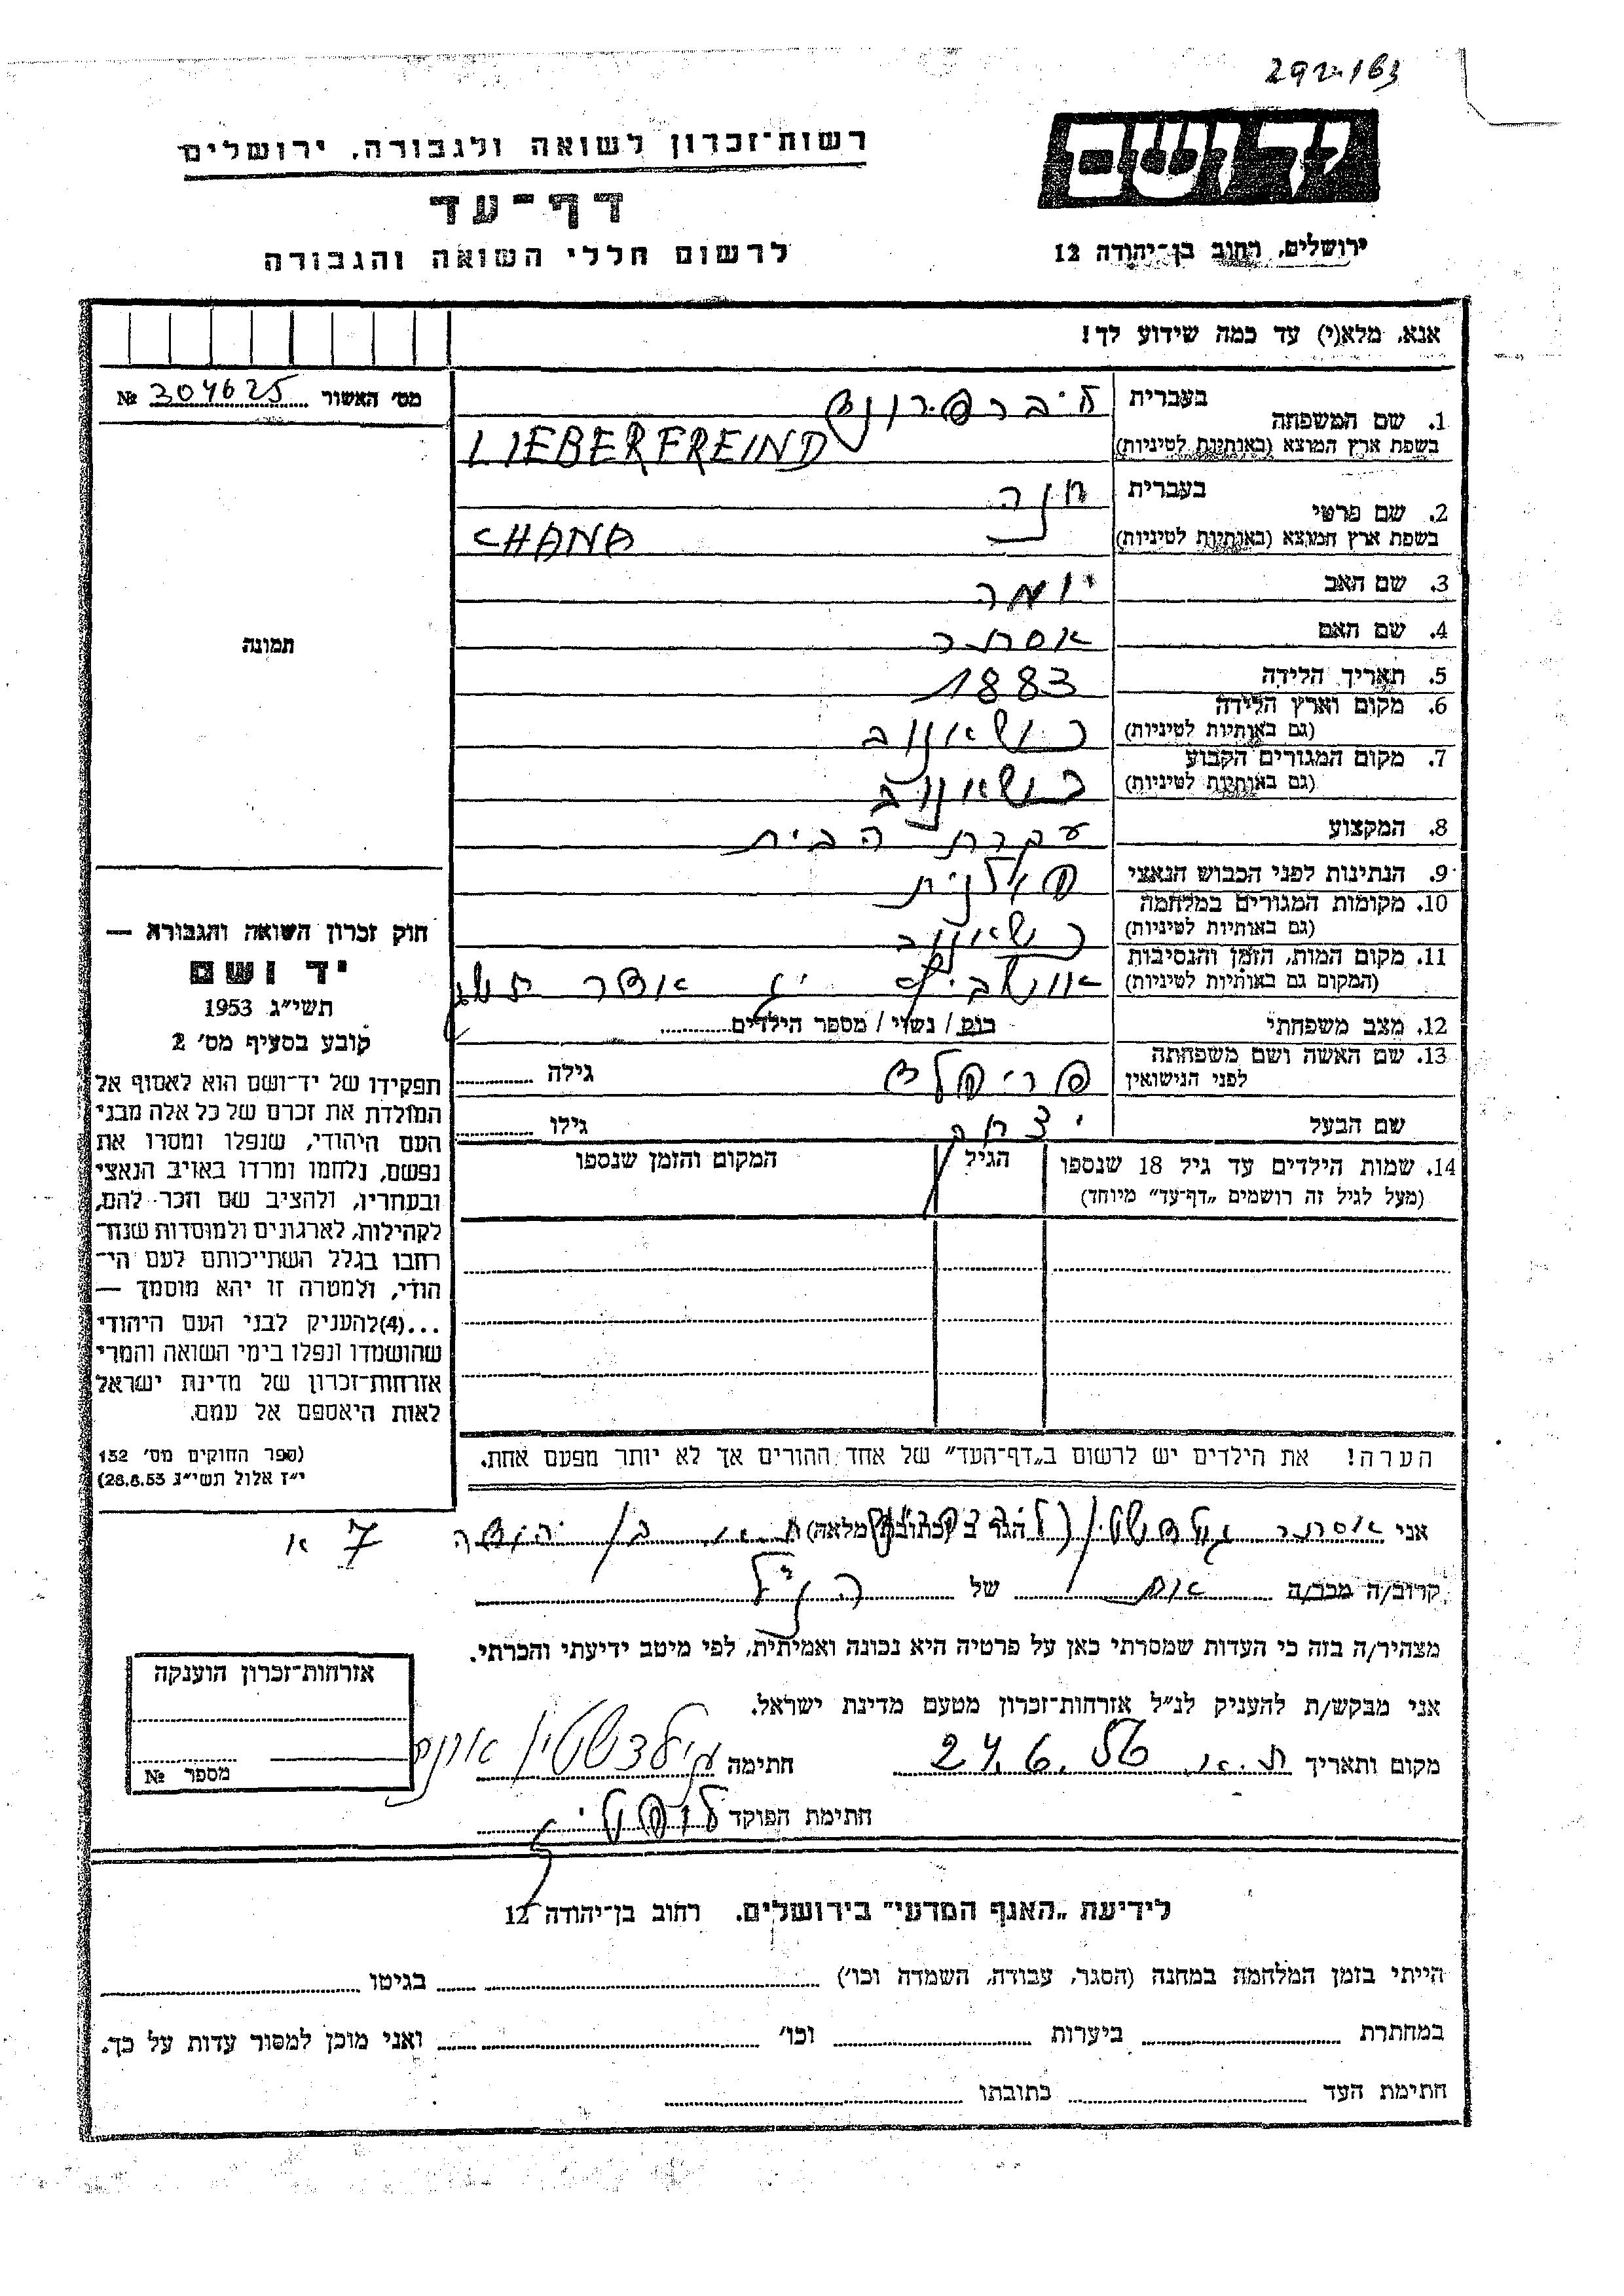 292-163
רשות־זכרון לשואה ולגבורה, ירושלים
דף־עד
לרשום חללי השואה והגבורה
יד ושם
ירושלים, רחוב בן־יהודה 12
אנא, מלא(י) עד כמה שידוע לך!
מס' האשור № 304625
1. שם המשפחה
בעברית ליברפרונד
בשפת ארץ המוצא (באותיות לטיניות) LIEBERFREIND
2. שם פרטי
בעברית חנה
בשפת ארץ המוצא (באותיות לטיניות) CHANA
3. שם האב
4. שם האם אסתר
5. תאריך הלידה 1883
6. מקום וארץ הלידה
(גם באותיות לטיניות) כשאנוב
7. מקום המגורים הקבוע
(גם באותיות לטיניות) כשאנוב
8. המקצוע עקרת הבית
9. הנתינות לפני הכבוש הנאצי פולנית
10. מקומות המגורים במלחמה
(גם באותיות לטיניות) כשאנוב
11. מקום המות, הזמן והנסיבות
(המקום גם באותיות לטיניות) אושביץ אדר
12. מצב משפחתי רוק / נשוי / מספר הילדים
13. שם האשה ושם משפחתה
לפני הנישואין גילה
שם הבעל גילו
14. שמות הילדים עד גיל 18 שנספו
(מעל לגיל זה רושמים „דף־עד” מיוחד)
הגיל
המקום והזמן שנספו
הערה! את הילדים יש לרשום ב„דף־העד” של אחד ההורים אך לא יותר מפעם אחת.
תמונה
חוק זכרון השואה והגבורה —
יד ושם
תשי״ג 1953
קובע בסעיף מס' 2
תפקידו של יד־ושם הוא לאסוף אל
המולדת את זכרם של כל אלה מבני
העם היהודי, שנפלו ומסרו את
נפשם, נלחמו ומרדו באויב הנאצי
ובעוזריו, ולהציב שם וזכר להם,
לקהילות, לארגונים ולמוסדות שנח־
רבו בגלל השתייכותם לעם הי־
הודי, ולמטרה זו יהא מוסמך —
...(4)להעניק לבני העם היהודי
שהושמדו ונפלו בימי השואה והמרי
אזרחות־זכרון של מדינת ישראל
לאות היאספם אל עמם.
(ספר החוקים מס' 132
י״ז אלול תשי״ג 28.8.53)
אני אסתר גולדשטין הגר ב (כתובת מלאה) ת״א בן יהודה 7 א
קרוב/ה מכר/ה של הנ״ל
מצהיר/ה בזה כי העדות שמסרתי כאן על פרטיה היא נכונה ואמיתית, לפי מיטב ידיעתי והכרתי.
אני מבקש/ת להעניק לנ״ל אזרחות־זכרון מטעם מדינת ישראל.
מקום ותאריך ת.א. 24.6.56 חתימה
חתימת הפוקד
אזרחות־זכרון הוענקה
מספר №
לידיעת „האגף המדעי” בירושלים. רחוב בן־יהודה 12
הייתי בזמן המלחמה במחנה (הסגר, עבודה, השמדה וכו') בגיטו
במחתרת ביערות וכו' ואני מוכן למסור עדות על כך.
חתימת העד כתובתו